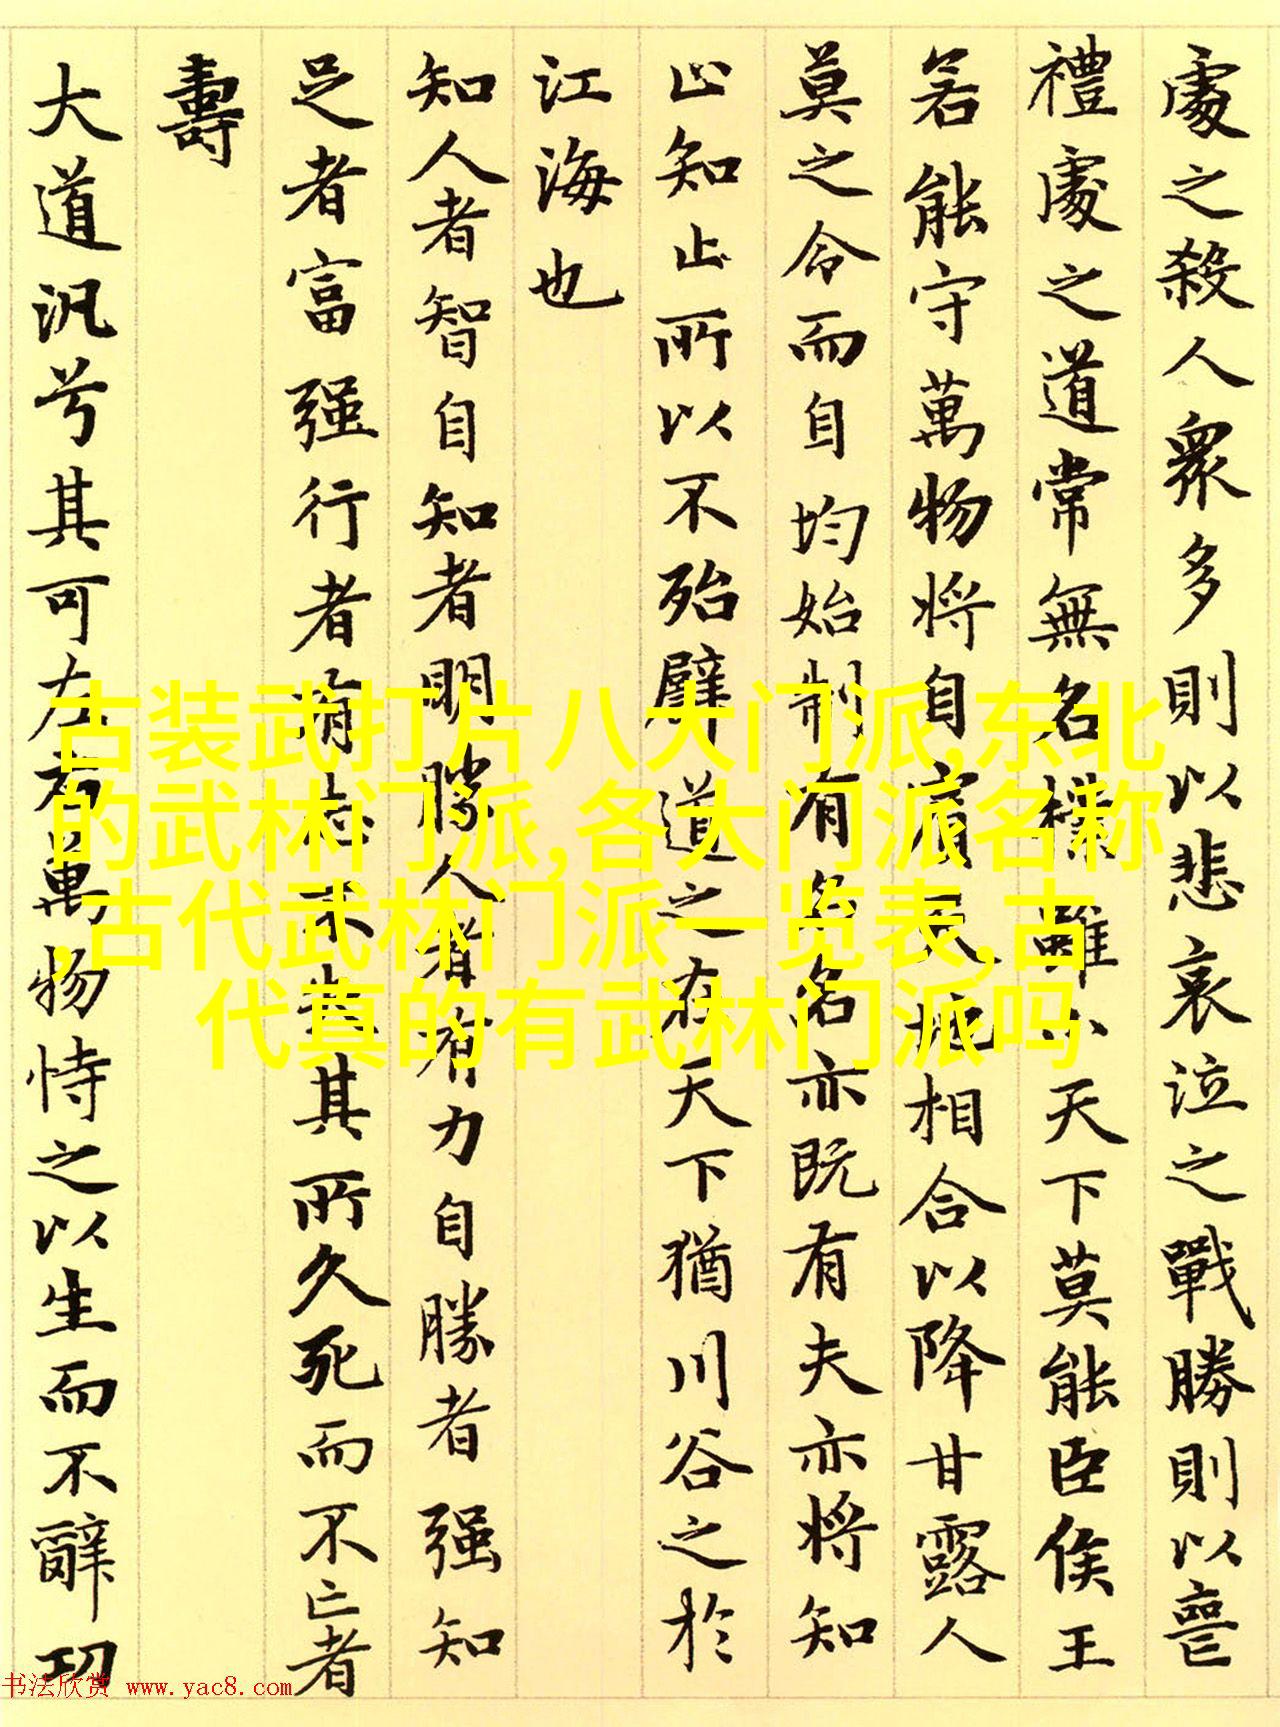 處之殺人衆多則以悲哀泣之戰勝則以喪
禮處之道常無名樸雖小天下莫能臣侯王
若能守萬物將自賓天地相合以降甘露人
莫之令而自均始制有名名亦既有夫亦將知
止知止所以不殆譬道之在天下猶川谷之於
江海也
知人者智自知者明勝人者有力自勝者强知
足者富强行者有志不失其所久死而不亡者
壽
大道汎兮其可左右萬物恃之以生而不辭功
古装武打片八大门派,东北
的武林门派,各大门派名称
,古代武林门派一览表,古
代真的有武林门派吗
书法欣赏 www.yac8.com